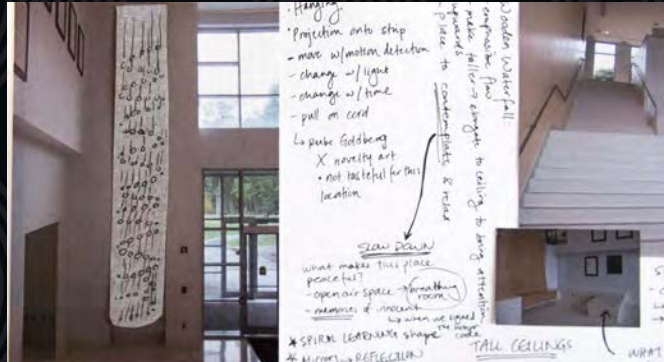 · Hanging
· Projection onto strip
- move w/motion detection
- change w/light
- change w/time
- pull on cord
↳ rube Goldberg
X novelty art
• not tasteful for this
location
Wooden Waterfall:
emphasize flow
make taller → elongate to ceiling to bring attention
upwards
- place to contemplate & relax
SLOW DOWN
what makes this place
peaceful?
- open air space → breathing
room
- memories of innocent
↳ when we signed
the honor
code
* SPIRAL LEARNING shape
* Mirrors → REFLECTION
TALL CEILINGS
WHAT